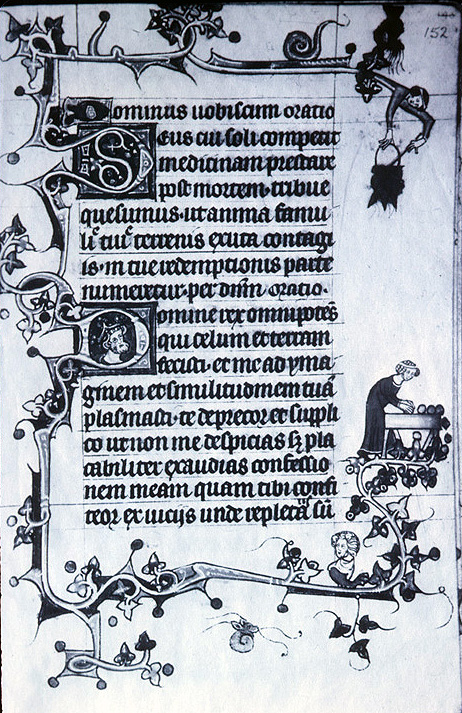 152
Dominus uobiscum oratio
Deus cui soli competit
medicinam prestare
post mortem. tribue
quesumus. ut anima famu
li tui terrenis exuta contagi
is. in tue redemptionis parte
numeretur. per dnm. oratio.
Domine rex omnipotes
qui celum et terram
fecisti. et me ad yma
ginem et similitudinem tuā
plasmasti. te deprecor et suppli
co ut non me despicias sʒ pla
cabiliter exaudias confessio
nem meam quam tibi confi
teor ex iniciis unde repleta sū